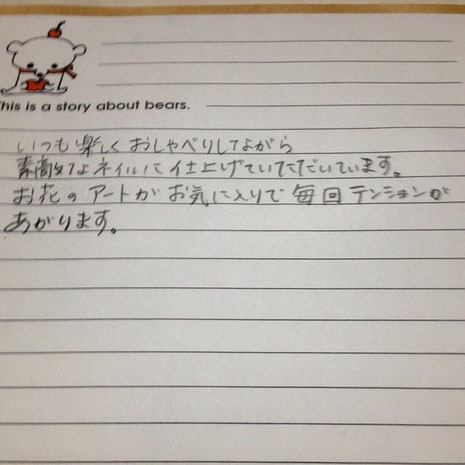 This is a story about bears.
いつも楽しくおしゃべりしてながら
素敵なネイルに仕上げていただいています。
お花のアートがお気に入りで毎回テンションが
あがります。